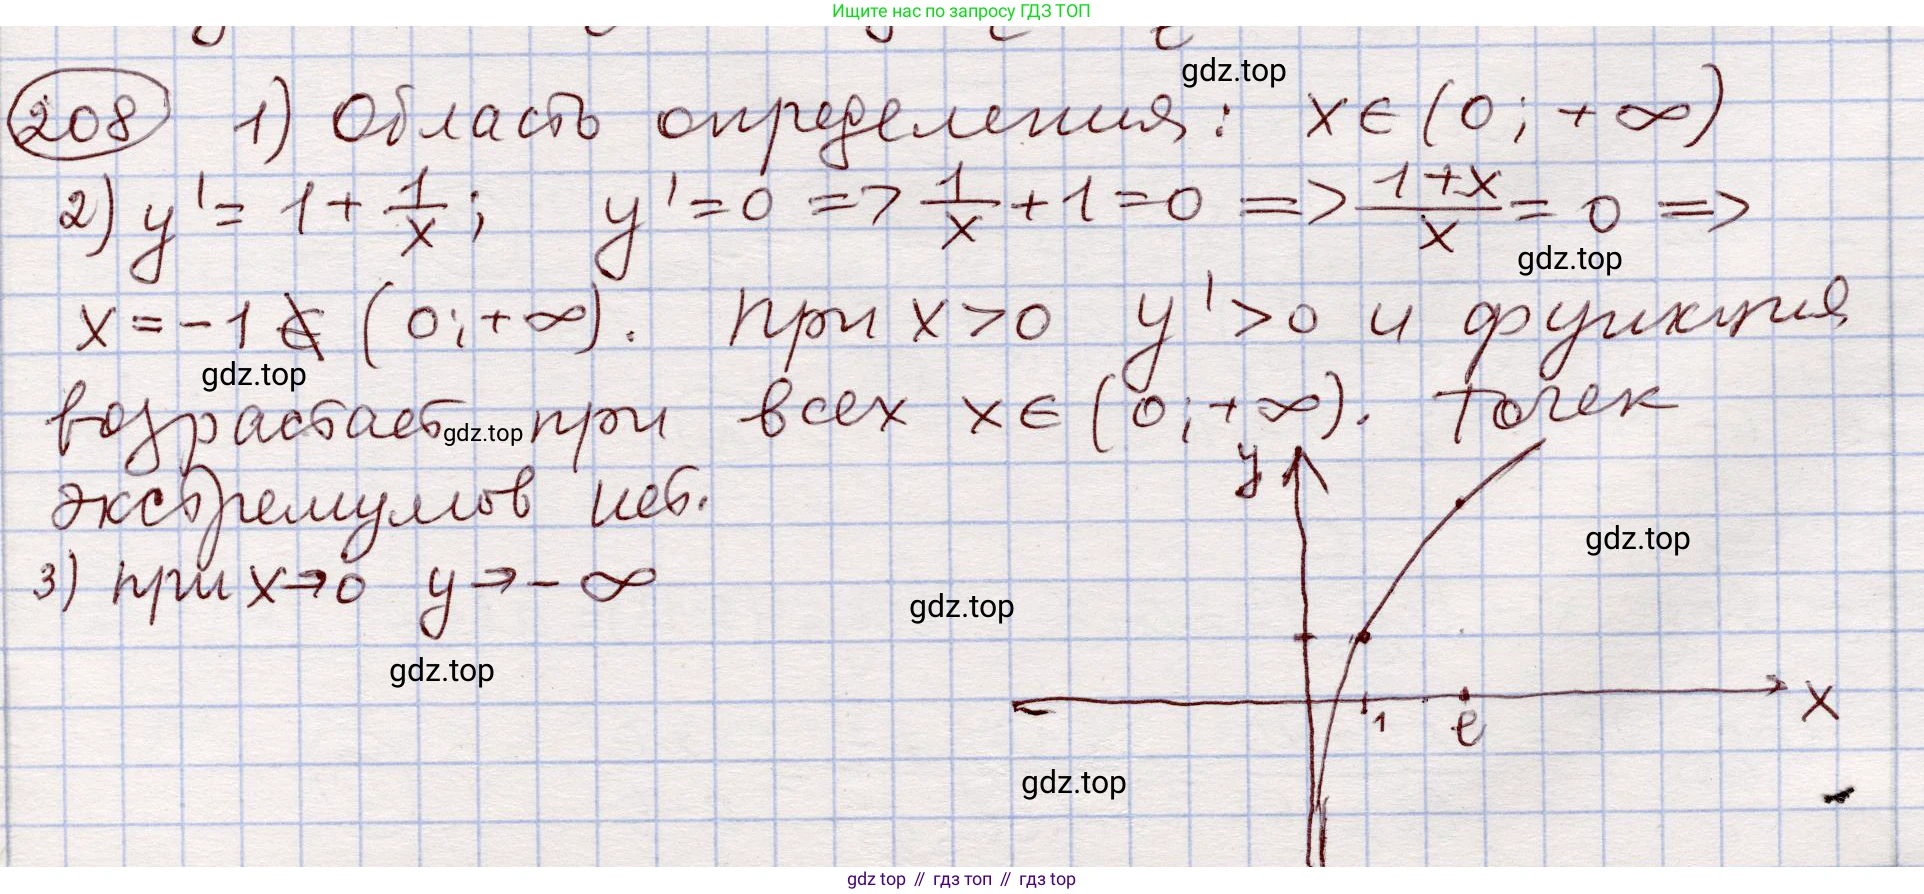 Ищите нас по запросу ГДЗ ТОП
gdz.top
208 1) Область определения: x∈(0; +∞)
2) y' = 1 + 1/x; y' = 0 => 1/x + 1 = 0 => (1+x)/x = 0 =>
gdz.top
x = -1 ∉ (0; +∞). При x > 0 y' > 0 и функция
gdz.top
возрастает при всех x∈(0; +∞). Точек
gdz.top
экстремумов нет.
y
gdz.top
3) при x→0 y→-∞
gdz.top
gdz.top
1 e x
gdz.top
gdz top // гдз топ // гдз top